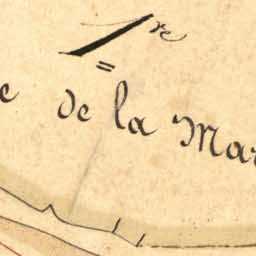 1re
de la Mar